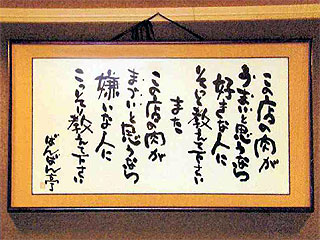 この店の肉が
うまいと思うなら
好きな人に
そっと教えて下さい
また
この店の肉が
まづいと思うなら
嫌いな人に
こっそり教えて下さい
ばんばん亭